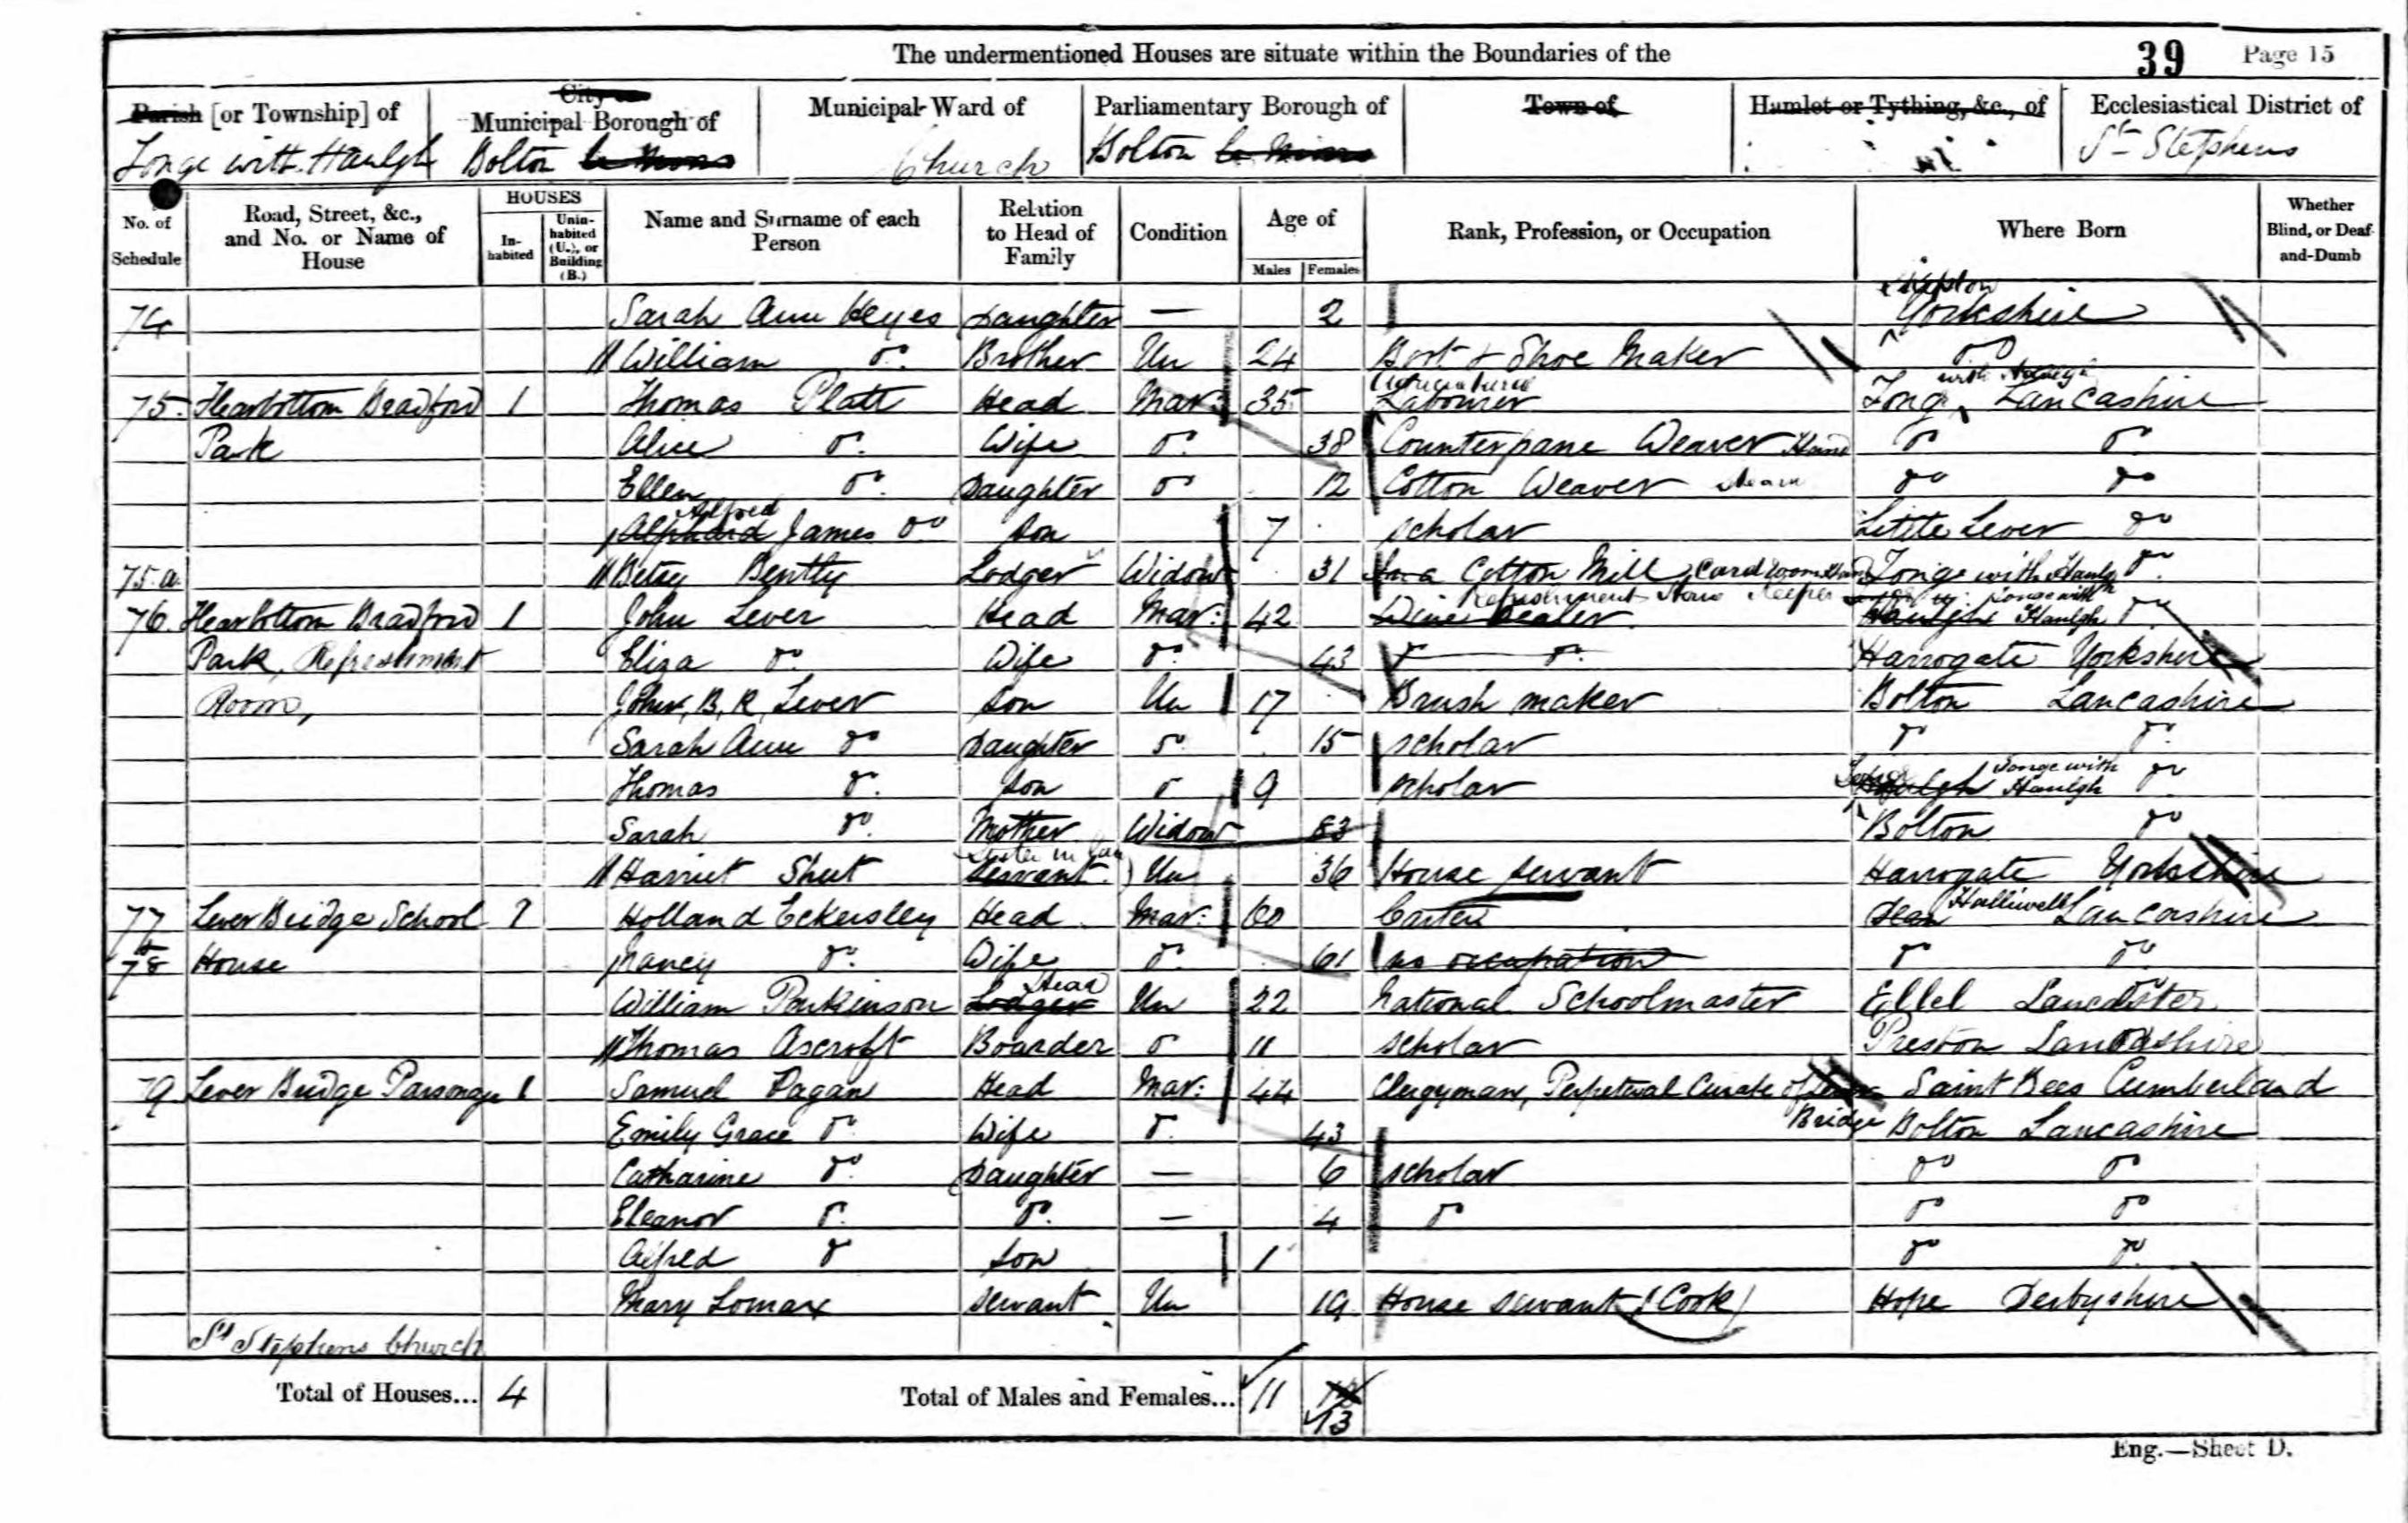 The undermentioned Houses are situate within the Boundaries of the
39 Page 15
Parish [or Township] of
City or
Municipal Borough of
Municipal Ward of
Parliamentary Borough of
Town of
Hamlet or Tything, &c., of
Ecclesiastical District of
Tonge with Haulgh
Bolton le Moors
Church
Bolton le Moors
St Stephens
No. of Schedule
Road, Street, &c., and No. or Name of House
HOUSES
In-habited
Unin-habited (U.), or Building (B.)
Name and Surname of each Person
Relation to Head of Family
Condition
Age of
Males
Females
Rank, Profession, or Occupation
Where Born
Whether Blind, or Deaf-and-Dumb
74 Sarah Ann Heyes Daughter — 2 Yorkshire
William Do. Brother Un 24 Boot & Shoe Maker Do
75 Bradford 1 Thomas Platt Head Mar: 35 Labourer Tong with Haulgh Lancashire
Park Alice Do. Wife Do. 38 Counterpane Weaver Hand Do Do.
Ellen Do. Daughter Do 12 Cotton Weaver Steam Do Do
Alfred James Do Son 7 Scholar Little Lever Do
75.a. Betsy Bently Lodger Widow 31 In a Cotton Mill, Card room Tonge with Haulgh Do.
76 Bradford 1 John Lever Head Mar: 42 Wine Dealer Refreshment Keeper Haulgh Tonge with Haulgh Do.
Park, Refreshment Eliza Do. Wife Do. 43 Do. Harrogate Yorkshire
Room, John, B, R, Lever Son Un 17 Brush maker Bolton Lancashire
Sarah Ann Do Daughter Do. 15 Scholar Do Do.
Thomas Do. Son Do 9 Scholar Tonge with Haulgh Do
Sarah Do. Mother Widow 83 Bolton Do
Harriet Shut Servant Sister in law Un 36 House Servant Harrogate Yorkshire
77 Lever Bridge School 2 Holland Eckersley Head Mar: 60 Carter Dean Halliwell Lancashire
to 78 House Nancy Do. Wife Do. 61 no occupation Do Do.
William Parkinson Lodger Head Un 22 National Schoolmaster Ellel Lancaster
Thomas Ascroft Boarder Do 11 Scholar Preston Lancashire
79 Lever Bridge Parsonage 1 Samuel Dagan Head Mar: 44 Clergyman, Perpetual Curate of Lever Bridge Saint Bees Cumberland
Emily Grace Do. Wife Do. 43 Bolton Lancashire
Catharine Do. Daughter — 6 Scholar Do Do
Eleanor Do. Do. — 4 Do Do Do
Alfred Do Son 1 Do Do.
Mary Lomax Servant Un 19 House Servant (Cook) Hope Derbyshire
St Stephens Church
Total of Houses... 4
Total of Males and Females... 11 13
Eng.—Sheet D.